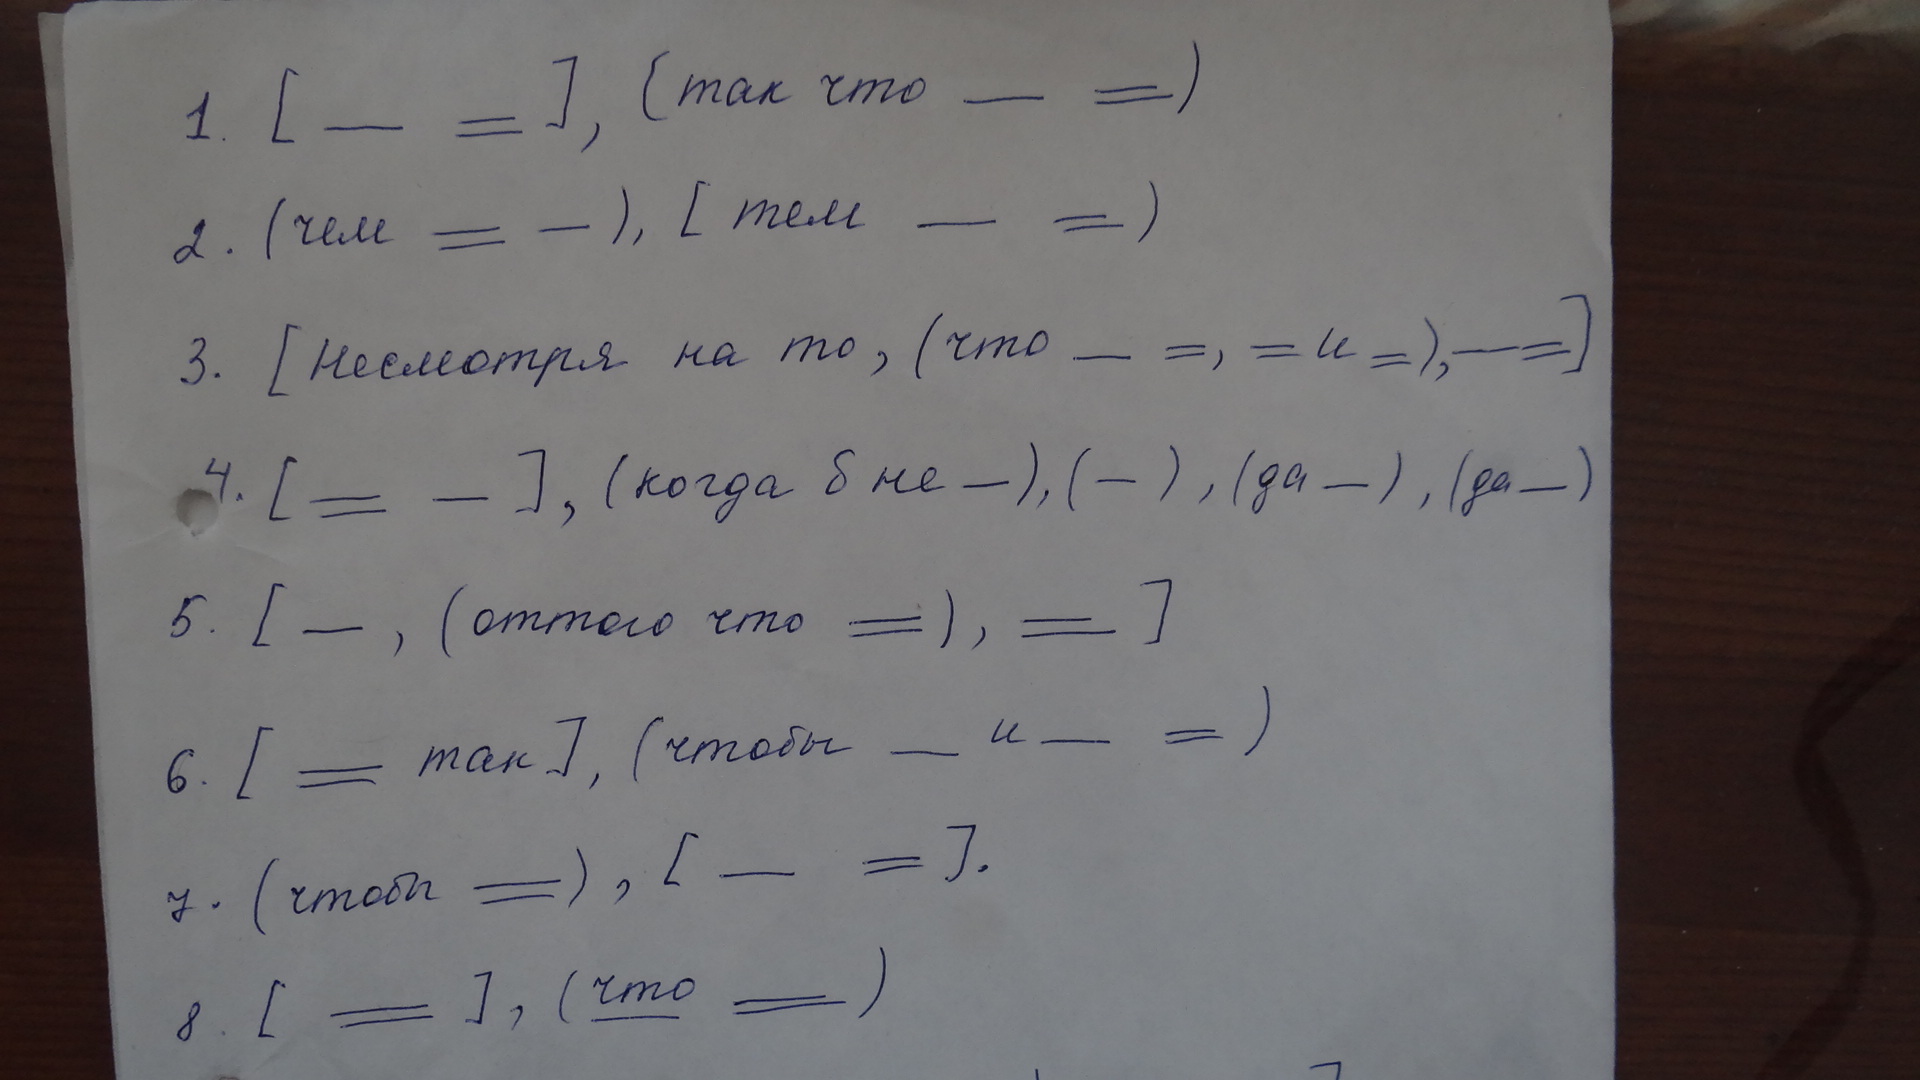 1. [ — = ], (так что — =)
2. (чем = —), [ тем — = )
3. [Несмотря на то, (что — =, = и =), — =]
4. [ = — ], (когда б не —), ( — ), (да —), (да —)
5. [ — , (оттого что =), = ]
6. [ = так], (чтобы — и — = )
7. (чтобы =), [ — = ].
8. [ = ], (что = )